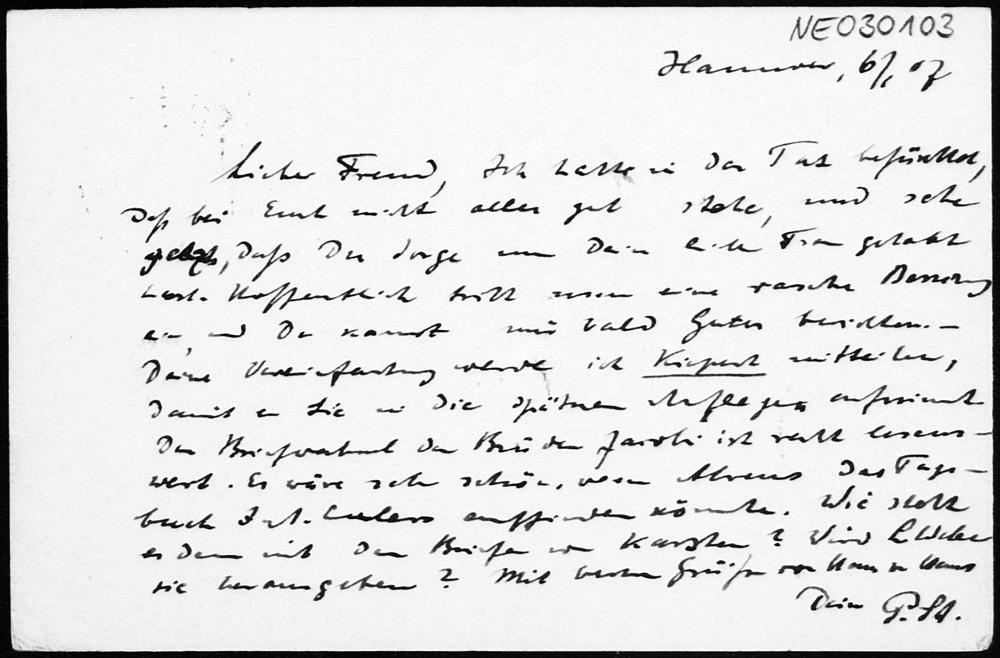 NE030103
Hannover, 6/1 07
Lieber Freund, Ich hatte in der Tat befürchtet,
daß bei Euch nicht alles gut stehe, und sehe
jetzt, daß Du Sorge um Deine liebe Frau gehabt
hast. Hoffentlich tritt nun eine rasche Besserung
ein, und Du kannst mir bald Gutes berichten. —
Deine Vereinfachung werde ich Kiepert mitteilen,
damit er sie in die späteren Auflagen aufnimmt.
Der Briefwechsel der Brüder Jacobi ist recht lesens-
wert. Es wäre sehr schön, wenn Ahrens das Tage-
buch J. A. Eulers auffinden könnte. Wie steht
es denn mit den Briefen von Karsten? Wird
sie herausgeben? Mit besten Grüßen von Haus zu Haus
Dein P. St.